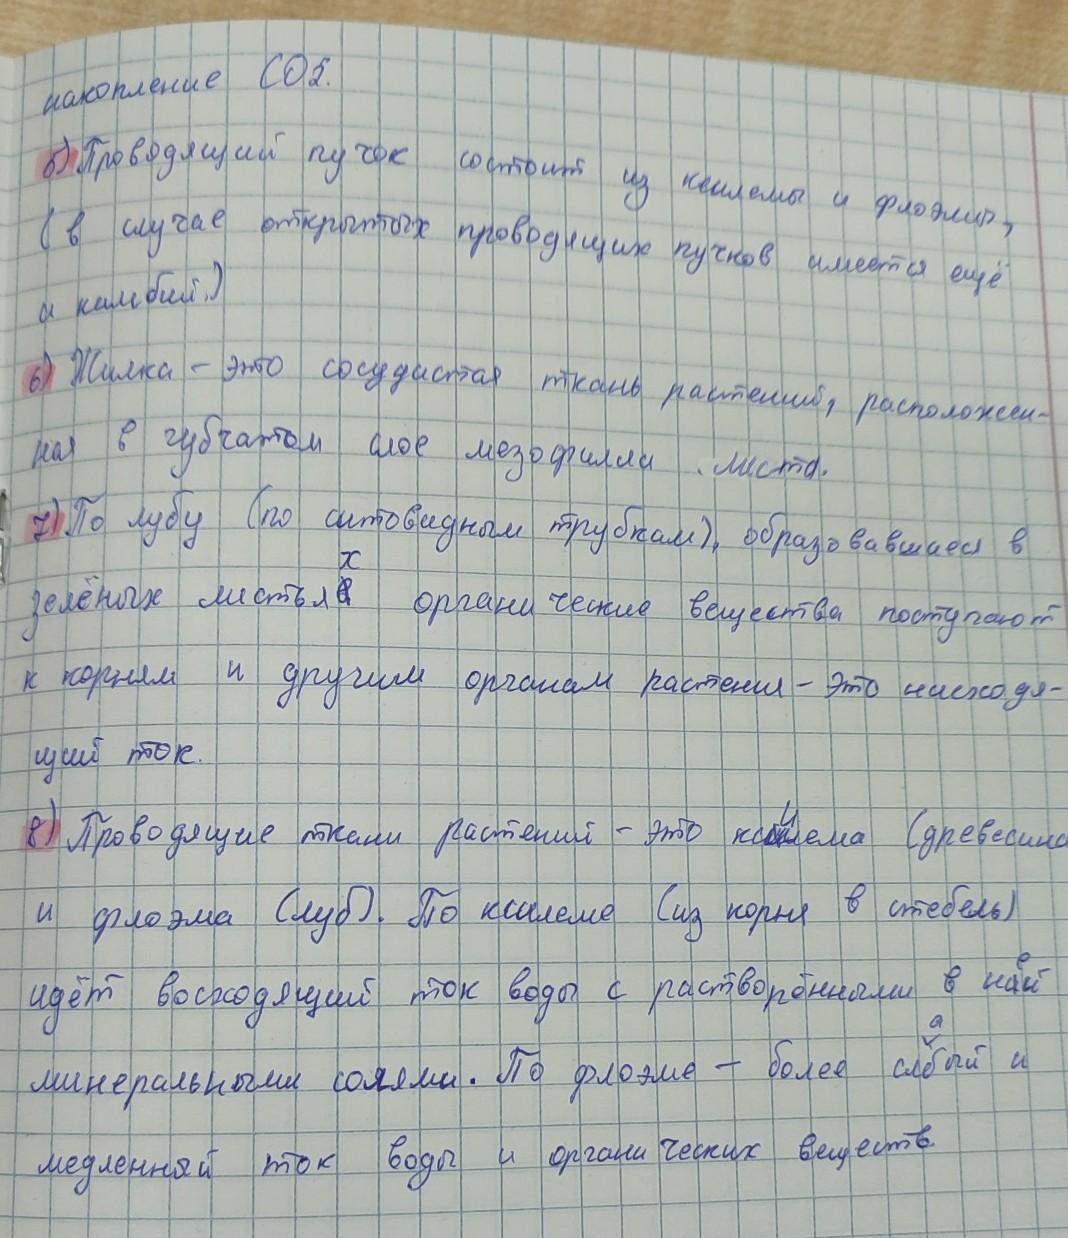 накопление CO2.
5) Проводящий пучок состоит из ксилемы и флоэмы,
(в случае открытых проводящих пучков имеется ещё
и камбий.)
6) Жилка - это сосудистая ткань растений, расположен-
ная в губчатом слое мезофилла листа.
7) По лубу (по ситовидным трубкам), образовавшиеся в
зелёных листьях органические вещества поступают
к корням и другим органам растения - это нисходя-
щий ток.
8) Проводящие ткани растений - это ксилема (древесина
и флоэма (луб). По ксилеме (из корня в стебель)
идёт восходящий ток воды с растворёнными в ней
минеральными солями. По флоэме - более слабый и
медленный ток воды и органических веществ.